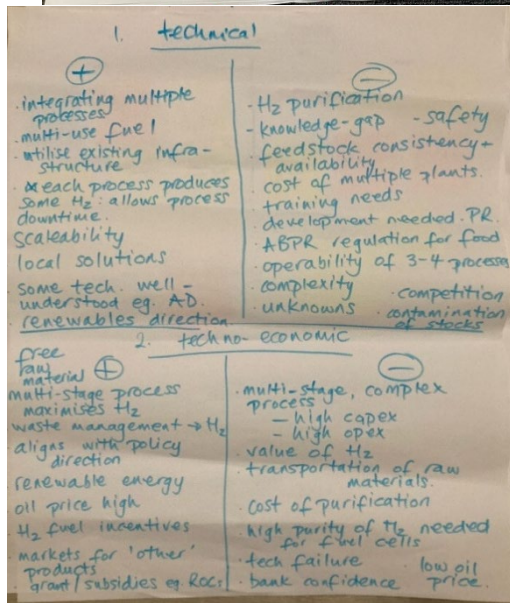 1. technical
+
· integrating multiple
processes
· multi-use fuel
· utilise existing infra-
structure
· each process produces
some H2: allows process
downtime.
scaleability
local solutions
some tech. well-
understood eg. AD.
· renewables direction
−
· H2 purification
- knowledge-gap - safety
· feedstock consistency +
availability
· cost of multiple plants.
· training needs
· development needed. PR.
· ABPR regulation for food
· operability of 3-4 processes
· complexity · competition
· unknowns · contamination
of stocks
2. techno-economic
+
free
raw
material
multi-stage process
maximises H2
waste management → H2
aligns with policy
direction
renewable energy
oil price high
H2 fuel incentives
· markets for 'other'
products
· grant/subsidies eg ROCs
−
· multi-stage, complex
process
- high capex
- high opex
· value of H2
· transportation of raw
materials.
· cost of purification
· high purity of H2 needed
for fuel cells
· tech failure · low oil
price.
· bank confidence